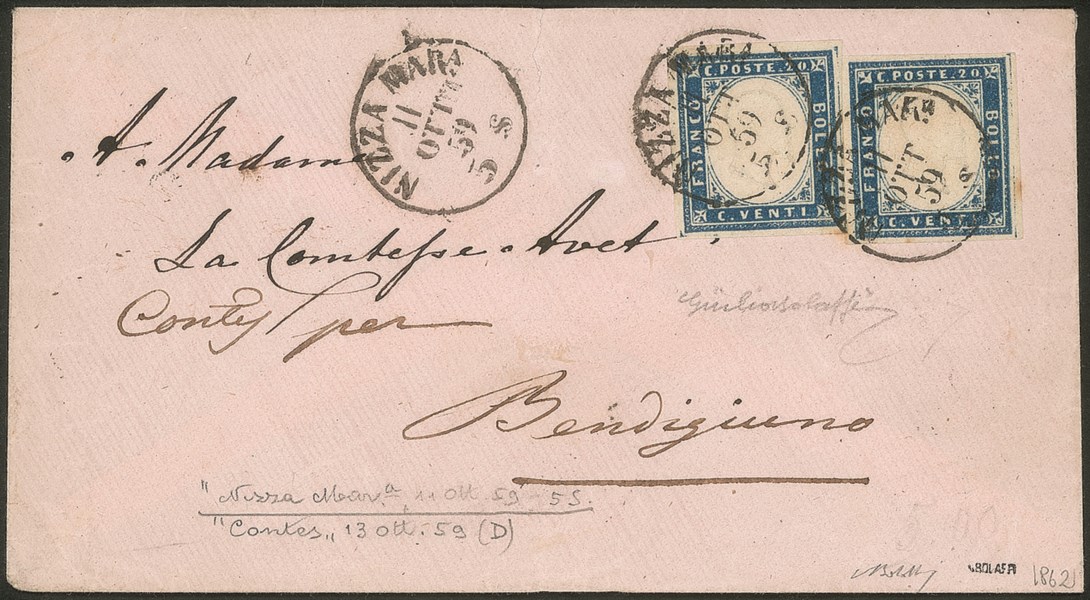 NIZZA MARA
11
OTTE
59
5 S
NIZZA MARA
11
OTT
59
5 S
C. POSTE. 20
FRANCO
BOLLO
C. VENTI
11
OTT
59
S
C. POSTE. 20
FRANCO
BOLLO
C. VENTI
A Madame
La Comtesse Avet
Contes per
Bendigiuno
"Nizza Mar.a 11 Ott. 59 - 5S.
"Contes„ 13 Ott. 59 (D)
1862